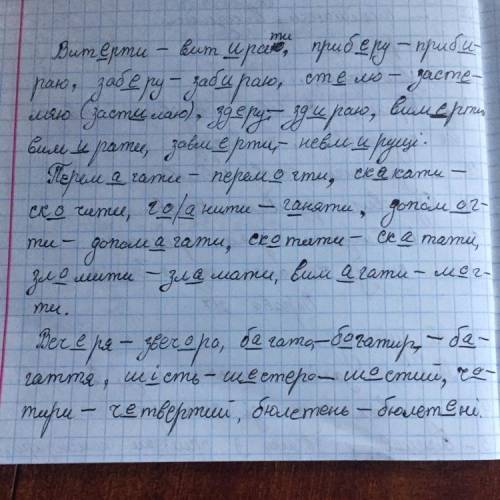 Витерти – витирати, приберу – приби-
раю, заберу – забираю, стелю – засте-
ляю (застилаю), здеру – здираю, вимерти,
вимирати, завмерти, – невмирущі.
Перемагати – перемогти, скакати –
скочити, го/анити – ганяти, допомог-
ти – допомагати, скотити – скатати,
зломити – зламати, вимагати – мог-
ти.
Вечеря – звечора, багато – богатир, – ба-
гаття, шість – шестеро – шостий, чо-
тири – четвертий, бюлетень – бюлетені.